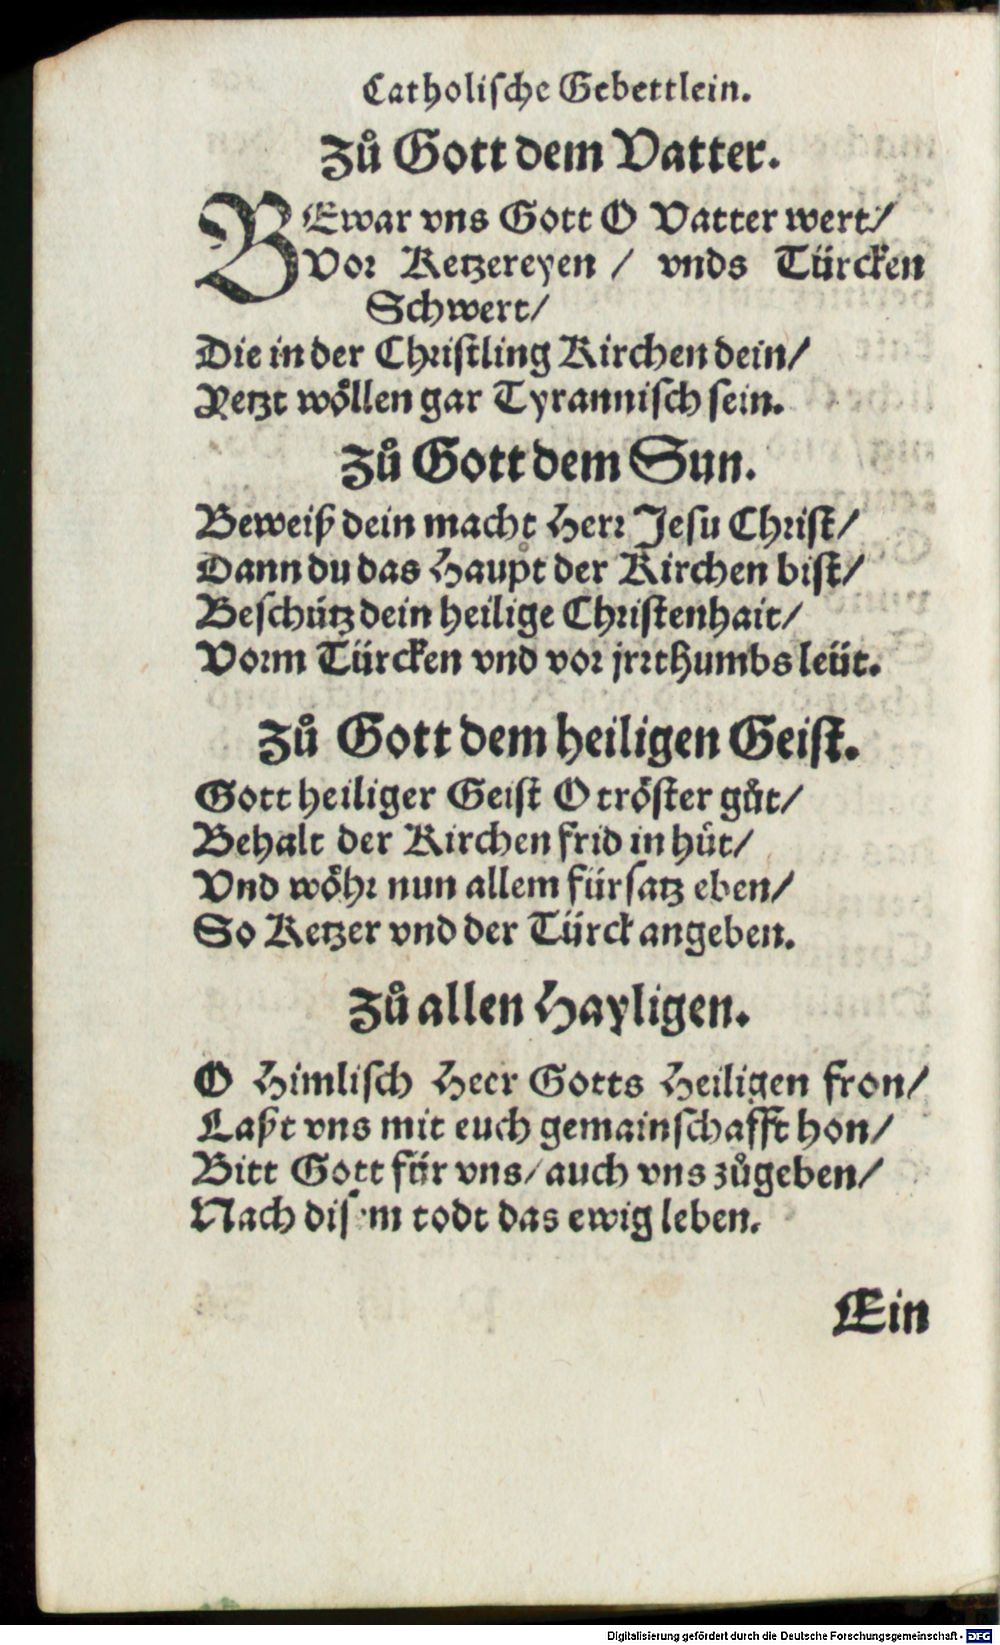 Catholische Gebettlein.
Zů Gott dem Vatter.
BEwar vns Gott O Vatter wert/
Vor Ketzereyen / vnds Türcken
Schwert/
Die in der Christling Kirchen dein/
Yetzt wöllen gar Tyrannisch sein.
Zů Gott dem Sun.
Beweiß dein macht Herr Jesu Christ/
Dann du das Haupt der Kirchen bist/
Beschütz dein heilige Christenhait/
Vorm Türcken vnd vor jrrthumbs leüt.
Zů Gott dem heiligen Geist.
Gott heiliger Geist O tröster gůt/
Behalt der Kirchen frid in hůt/
Vnd wöhr nun allem fürsatz eben/
So Ketzer vnd der Türck angeben.
Zů allen Hayligen.
O Himlisch Heer Gotts Heiligen fron/
Laßt vns mit euch gemainschafft hon/
Bitt Gott für vns/ auch vns zůgeben/
Nach disem todt das ewig leben.
Ein
Digitalisierung gefördert durch die Deutsche Forschungsgemeinschaft - DFG